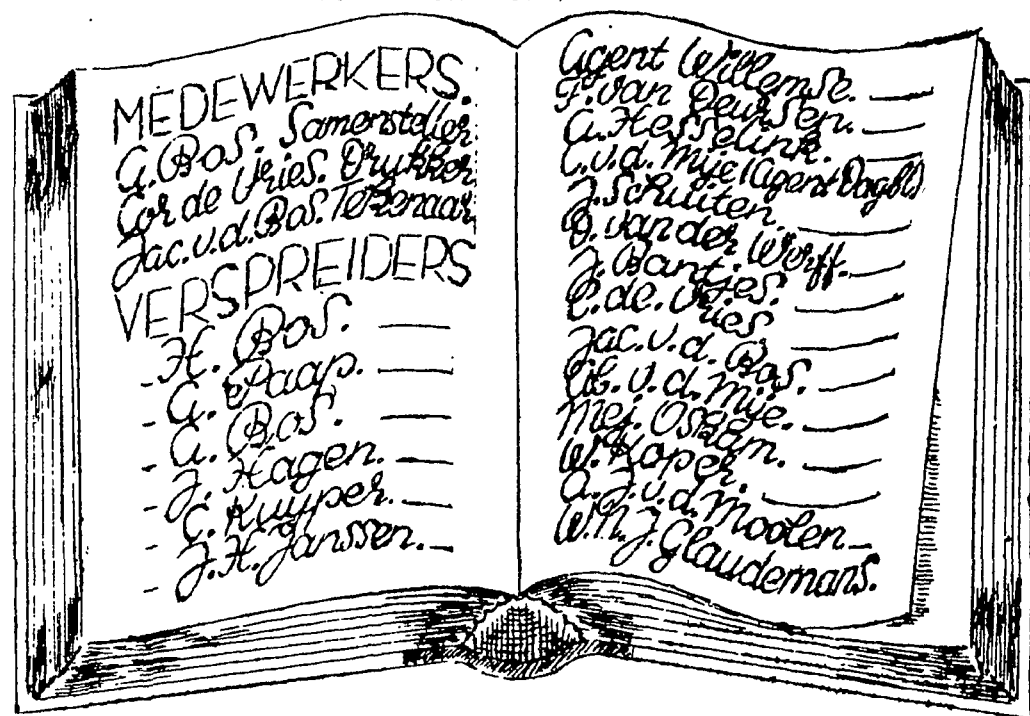 MEDEWERKERS.
G. Bos. Samensteller
Cor de Vries. Drukker
Jac. v.d. Bos. Tekenaar
VERSPREIDERS
- H. Bos. —
- G. Paap. —
- G. Bos. —
- J. Hagen. —
- C. Kuyper. —
- J.H. Janssen. —
Agent Willemse. —
F. van Deursen. —
A. Hesselink. —
C.v.d. Mije (Agent Dagbl)
J. Schuiten. —
D. van der Werff. —
J. Bantjes. —
C. de Vries —
Jac. v. d. Bos. —
Ab. v. d. Mije. —
Mej. Oskam. —
W. Koper. —
A. J. v. d. Moolen —
W.N.J. Glaudemans.